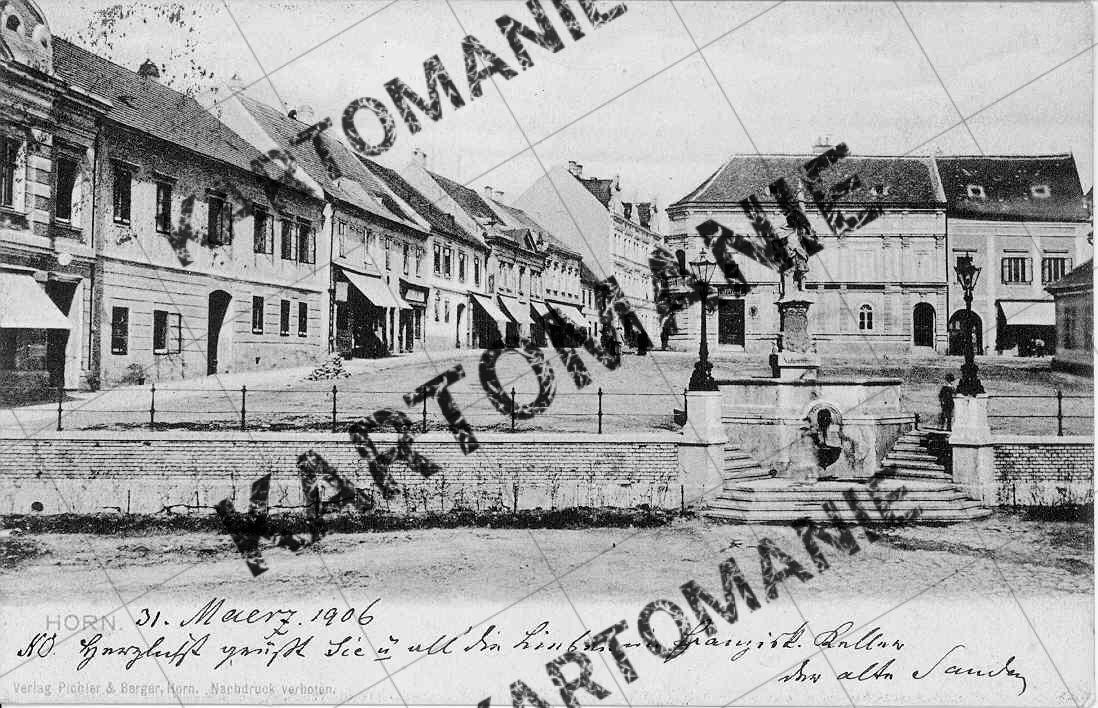 KARTOMANIE
KARTOMANIE
KARTOMANIE
KARTOMANIE
HORN. 31. Maerz. 1906
NÖ. Herzlichst grüßt Sie ü all' die Lieben in Franzisk. Keller
der alte
Verlag Pichler & Berger, Horn. Nachdruck verboten.